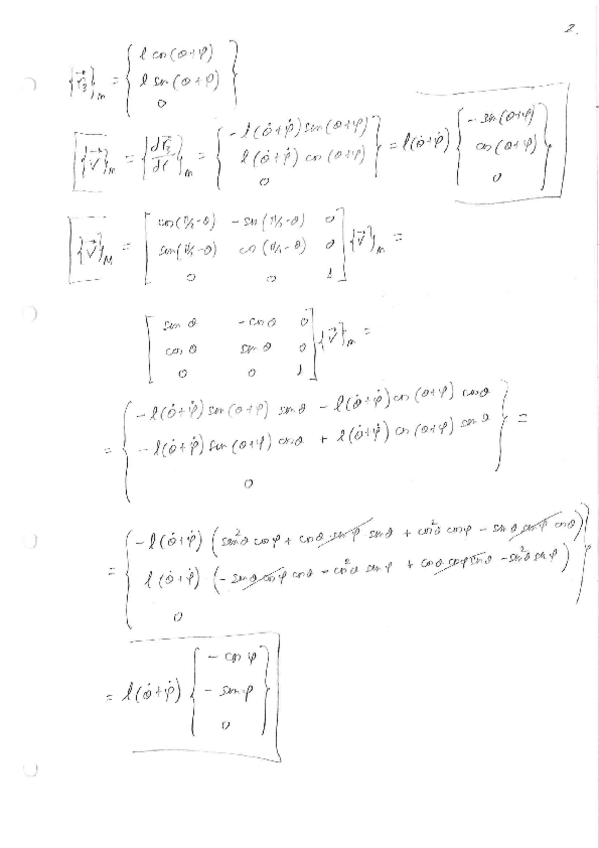 2.
{r⃗₃}ₘ = { l cos(θ+φ) ; l sin(θ+φ) ; 0 }
{V⃗}ₘ = {dr⃗₃/dt}ₘ = { -l(θ̇+φ̇) sin(θ+φ) ; l(θ̇+φ̇) cos(θ+φ) ; 0 } = l(θ̇+φ̇) { -sin(θ+φ) ; cos(θ+φ) ; 0 }
{V⃗}_M = [ cos(π/2-θ) -sin(π/2-θ) 0 ; sin(π/2-θ) cos(π/2-θ) 0 ; 0 0 1 ] {V⃗}ₘ =
[ sin θ -cos θ 0 ; cos θ sin θ 0 ; 0 0 1 ] {V⃗}ₘ =
= { -l(θ̇+φ̇) sin(θ+φ) sin θ - l(θ̇+φ̇) cos(θ+φ) cos θ ; -l(θ̇+φ̇) sin(θ+φ) cos θ + l(θ̇+φ̇) cos(θ+φ) sin θ ; 0 } =
= { -l(θ̇+φ̇) (sin²θ cos φ + cos θ sin φ sin θ + cos²θ cos φ - sin θ sin φ cos θ) ; l(θ̇+φ̇) (-sin θ cos φ cos θ - cos²θ sin φ + cos θ cos φ sin θ - sin²θ sin φ) ; 0 }
= l(θ̇+φ̇) { -cos φ ; -sin φ ; 0 }